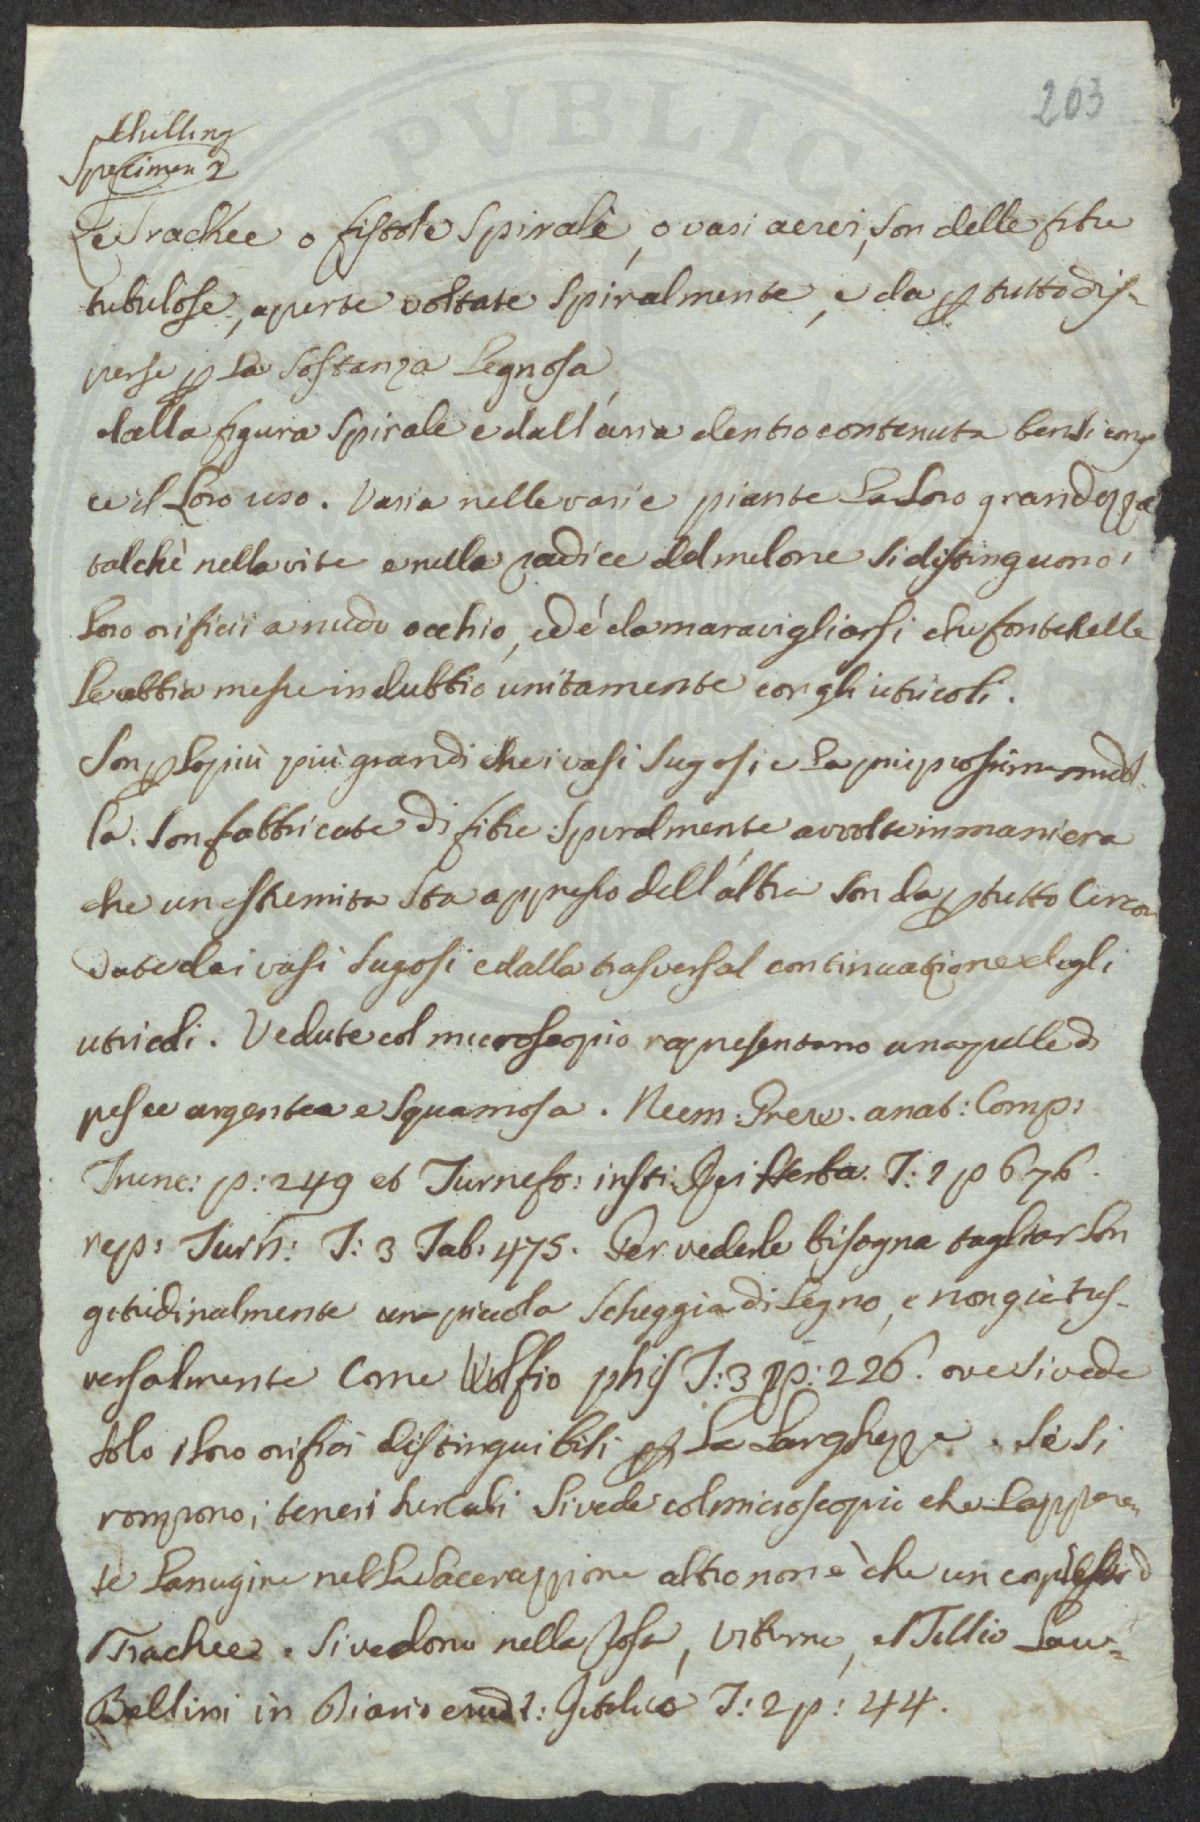 203
Schilling
Specimen 2
Le Trachee o fistole spirale, o vasi aerei, son delle fibre
tubulose, aperte voltate spiralmente, e da p tutto dis-
perse p la sostanza Legnosa
dalla figura spirale e dall'aria dentro contenuta
ce il Loro uso. Varia nelle varie piante la Loro grandezza
talchè nella vite e nella radice del melone si distinguono i
Loro orificii a nudo occhio, ed é da maravigliarsi che fontehelle
le abbia messe in dubbio unitamente con gli utricoli.
Son p lopiù più grandi che i vasi sugosi, e la più prossim midol-
la. Son fabbricate di fibre spiralmente avvolte in maniera
che un estremita sta appresso dell'altra son da p tutto Circon
date dai vasi sugosi e dalla trasversal continuazione degli
utricoli. Vedute col microscopio rapresentano una pelle di
pesce argentea e squamosa. Neem: Grew. anat: Comp:
Trunc: p: 249 et Turnefo: insti: Rei Herba: T: 1 p 676.
rep: Turn: T: 3 Tab: 475. Per vederle bisogna tagliar lon
gitudinalmente un piccola scheggia di Legno, e non già tras-
versalmente Come Wolfio phis T: 3 p: 226. ove si vede
solo i loro orifici distinguibili p La Larghezza. Se si
rompono i teneri surcoli si vede col microscopio che L'apparen
te Lanugine nella Lacerazzione altro non è che un d
Trachee. Si vedono nella Rosa, Viburno, e Tillio Lau-
Bellini in Diario erudt: Italico T: 2 p: 44.